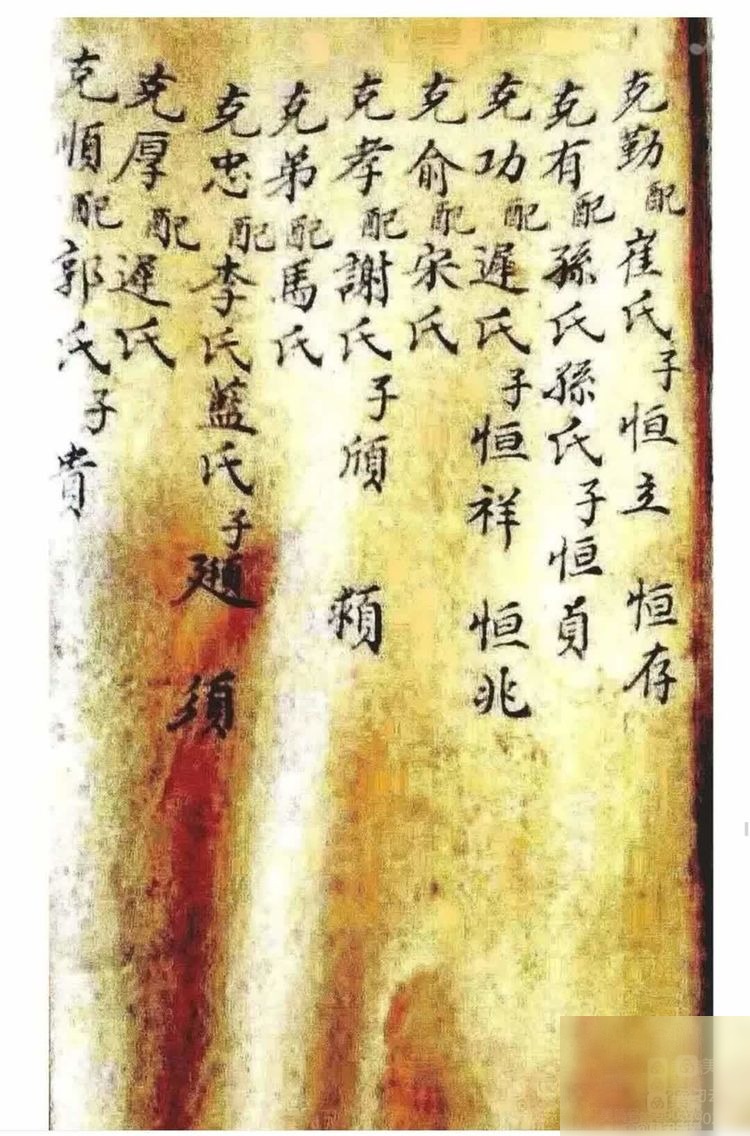 克勤配崔氏子恒立 恒存
克有配孫氏孫氏子恒貞
克功配遲氏子恒祥 恒兆
克俞配宋氏
克孝配謝氏子頎 頫
克弟配馬氏
克忠配李氏藍氏子 須
克厚配遲氏
克順配郭氏子貴